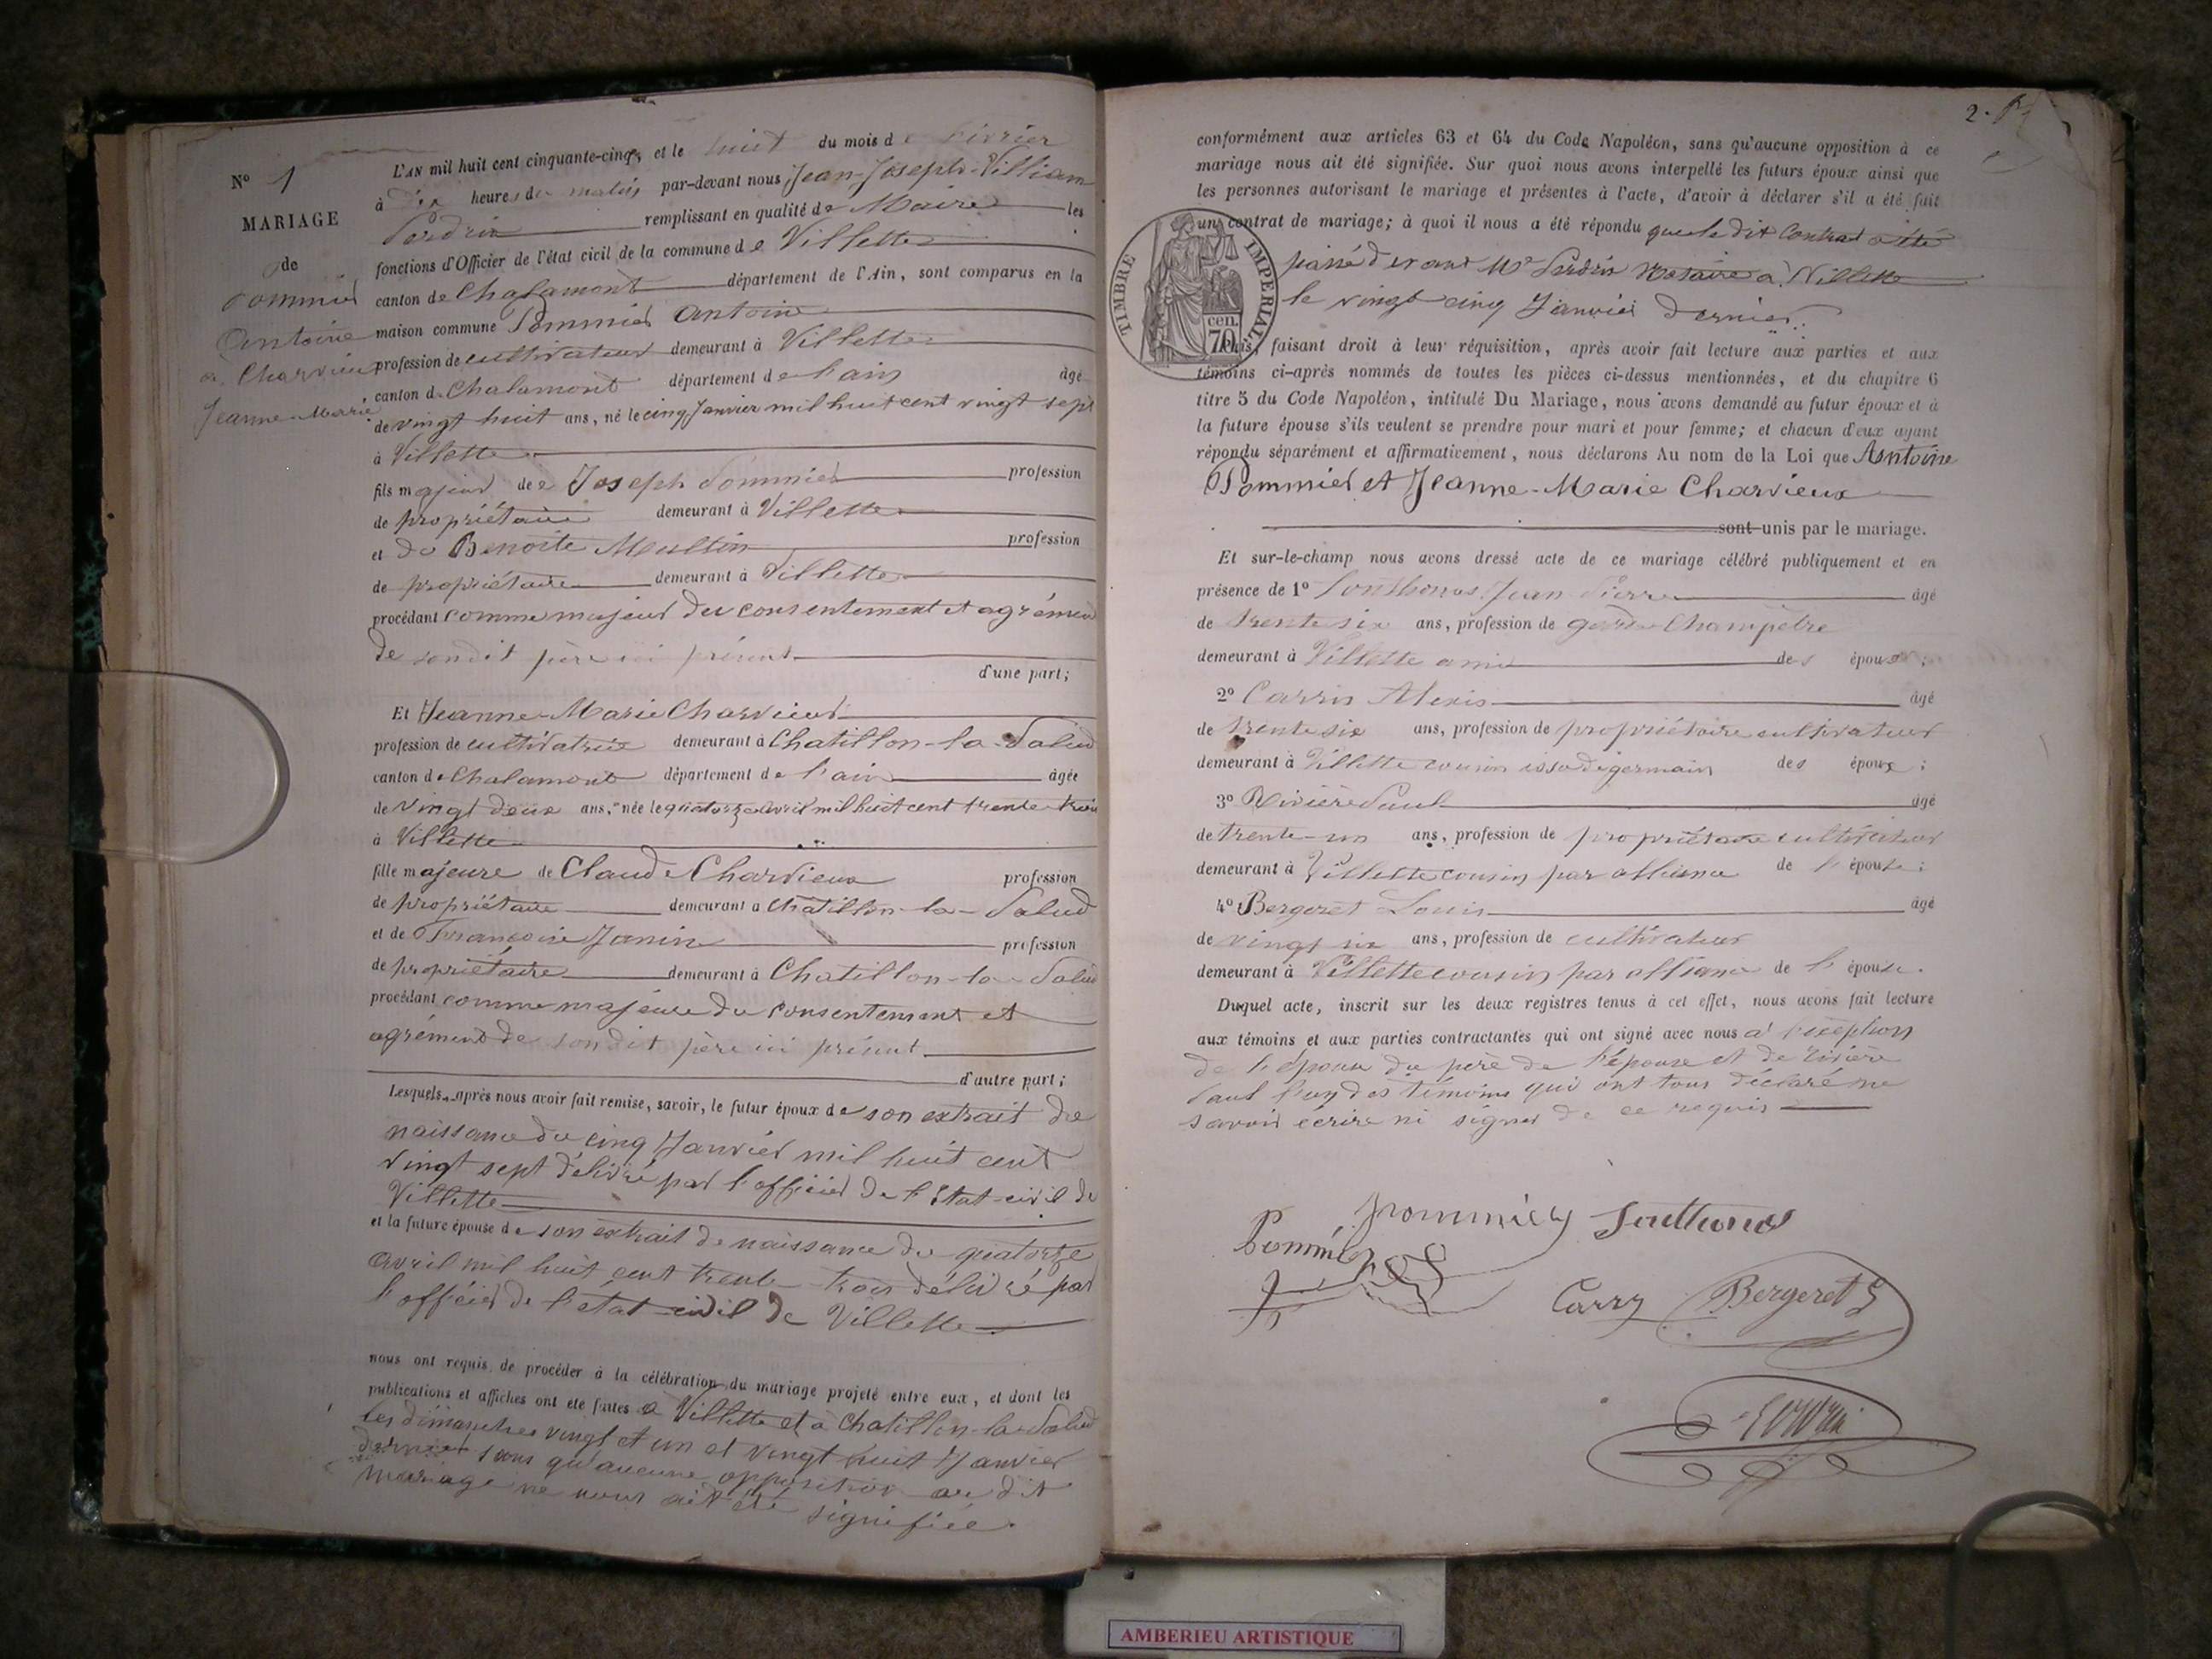 N° 1
MARIAGE
de
Pommier
Antoine
à Charvieux
Jeanne-Marie
L'AN mil huit cent cinquante-cinq, et le huit du mois de Février
à dix heures du matin par-devant nous Jean-Joseph-William
Perdrix remplissant en qualité de Maire les
fonctions d'Officier de l'état civil de la commune de Villette
canton de Chalamont département de l'Ain, sont comparus en la
maison commune Pommier Antoine
profession de cultivateur demeurant à Villette
canton de Chalamont département de l'ain âgé
de vingt huit ans, né le cinq Janvier mil huit cent vingt sept
à Villette
fils majeur de Joseph Pommier profession
de propriétaire demeurant à Villette
et de Benoite Moultin profession
de propriétaire demeurant à Villette
procédant comme majeur du consentement et agrément
de son dit père ici présent
d'une part;
Et Jeanne-Marie Charvieux
profession de cultivatrice demeurant à Chatillon-la-Palud
canton de Chalamont département de l'ain âgée
de vingt deux ans, née le quatorze avril mil huit cent trente trois
à Villette
fille majeure de Claude Charvieux profession
de propriétaire demeurant à Chatillon-la-Palud
et de Françoise Janin profession
de propriétaire demeurant à Chatillon-la-Palud
procédant comme majeure du consentement et
agrément de son dit père ici présent
d'autre part;
Lesquels, après nous avoir fait remise, savoir, le futur époux de son extrait de
naissance du cinq Janvier mil huit cent
vingt sept délivré par l'officier de l'Etat-civil de
Villette
et la future épouse de son extrait de naissance du quatorze
avril mil huit cent trente-trois délivré par
l'officier de l'état-civil de Villette
nous ont requis de procéder à la célébration du mariage projeté entre eux, et dont les
publications et affiches ont été faites à Villette et à Chatillon-la-Palud
les dimanches vingt et un et vingt huit Janvier
dernier sans qu'aucune opposition au dit
mariage ne nous ait été signifiée.
2.
conformément aux articles 63 et 64 du Code Napoléon, sans qu'aucune opposition à ce
mariage nous ait été signifiée. Sur quoi nous avons interpellé les futurs époux ainsi que
les personnes autorisant le mariage et présentes à l'acte, d'avoir à déclarer s'il a été fait
un contrat de mariage; à quoi il nous a été répondu que le dit Contrat a été
passé devant Me Perdrix Notaire à Villette
le vingt cinq Janvier dernier.
TIMBRE IMPERIAL
cen.
70
Puis, faisant droit à leur réquisition, après avoir fait lecture aux parties et aux
témoins ci-après nommés de toutes les pièces ci-dessus mentionnées, et du chapitre 6
titre 5 du Code Napoléon, intitulé Du Mariage, nous avons demandé au futur époux et à
la future épouse s'ils veulent se prendre pour mari et pour femme; et chacun d'eux ayant
répondu séparément et affirmativement, nous déclarons Au nom de la Loi que Antoine
Pommier et Jeanne-Marie Charvieux
sont unis par le mariage.
Et sur-le-champ nous avons dressé acte de ce mariage célébré publiquement et en
présence de 1° Jean Pierre âgé
de trente six ans, profession de garde-Champêtre
demeurant à Villette ami des époux;
2° Carry Alexis âgé
de trente six ans, profession de propriétaire cultivateur
demeurant à Villette cousin issu de germain des époux;
3° Rivière Paul âgé
de trente-un ans, profession de propriétaire cultivateur
demeurant à Villette cousin par alliance de l'épouse;
4° Bergeret Louis âgé
de vingt six ans, profession de cultivateur
demeurant à Villette cousin par alliance de l'épouse.
Duquel acte, inscrit sur les deux registres tenus à cet effet, nous avons fait lecture
aux témoins et aux parties contractantes qui ont signé avec nous à l'exception
de l'épouse du père de l'épouse et de Rivière
Paul l'un des témoins qui ont tous déclaré ne
savoir écrire ni signer de ce requis
Pommier pommier
Carry Bergeret
Perdrix
AMBERIEU ARTISTIQUE